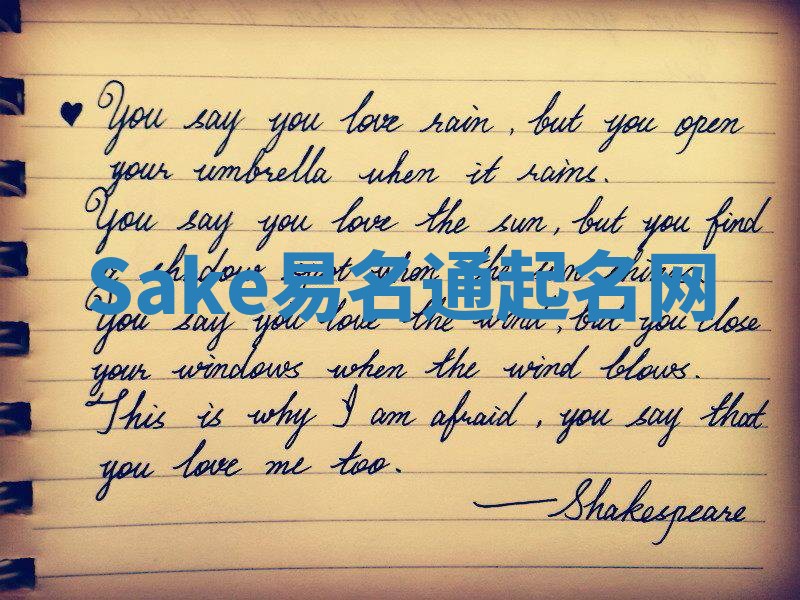 ♥ You say you love rain, but you open
your umbrella when it rains.
You say you love the sun, but you find
a shadow spot when the sun shines.
Sake易名通起名网
You say you love the wind, but you close
your windows when the wind blows.
This is why I am afraid, you say that
you love me too.
— Shakespeare